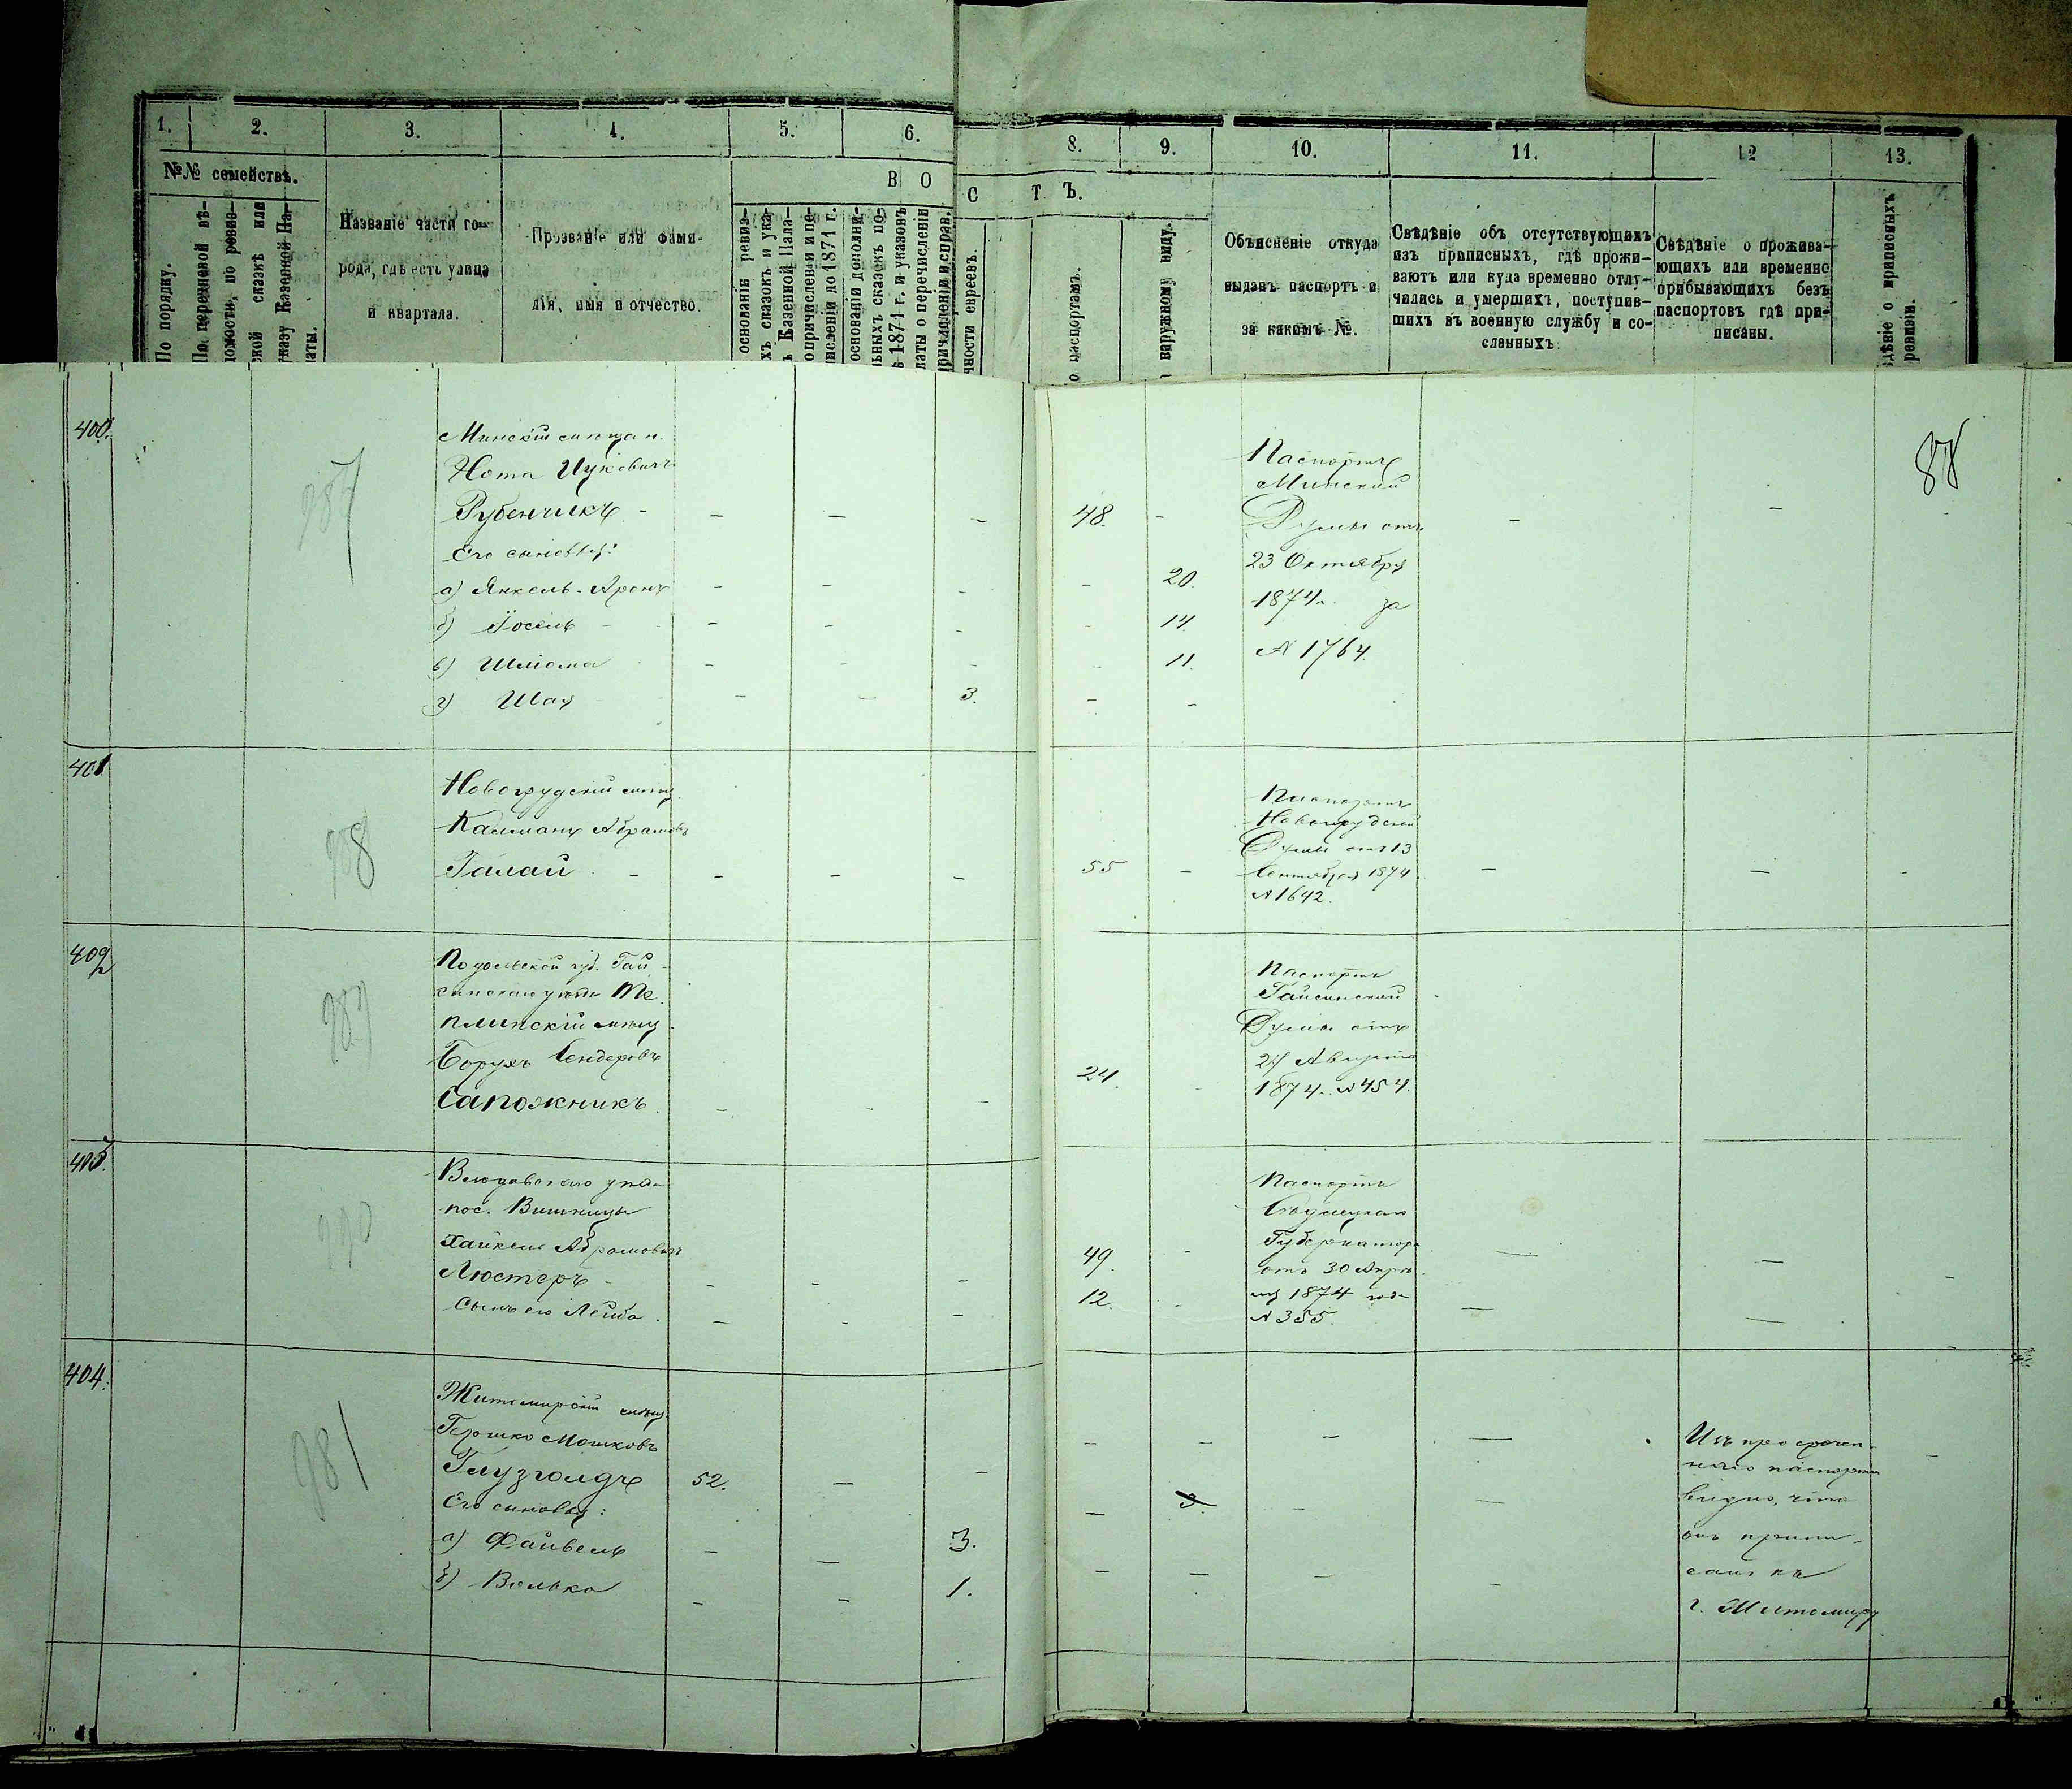 1. 2. 3. 4. 5. 6. 8. 9. 10. 11. 12 13.
№№ семействъ.
В О С Т Ъ.
По порядку.
По перечневой вѣ-
домости, по ревиз-
ской сказкѣ или
указу Казенной Па-
латы.
Названіе части го-
рода, гдѣ есть улица
и квартала.
Прозваніе или фами-
лія, имя и отчество.
основаніи ревиз-
хъ сказокъ и ука-
ъ Казенной Пала-
о причисленіи и пе-
исленіи до 1871 г.
основаніи дополни-
льныхъ сказокъ по-
ѣ 1871 г. и указовъ
латы о перечисленіи
причисленіи и справ.
чности евреевъ.
о паспортамъ.
о наружному виду.
Объясненіе откуда
выданъ паспортъ и
за какимъ №.
Свѣдѣніе объ отсутствующихъ
изъ приписныхъ, гдѣ прожи-
ваютъ или куда временно отлу-
чились и умершихъ, поступив-
шихъ въ военную службу и со-
сланныхъ
Свѣдѣніе о прожива-
ющихъ или временно
прибывающихъ безъ
паспортовъ гдѣ при-
писаны.
ѣдѣніе о приписныхъ
ревизіи.
88
400.
Минскій мѣщан.
Нота Ицковичъ
Рубенчикъ - - - - 48. - - -
Его сыновья:
а) Янкель-Аронъ - - - - 20.
б) Іосель - - - - 14.
в) Шліома - - - - 11.
г) Шая - - 3. - -
Паспортъ
Минской
Думы отъ
23 Октября
1874 г. за
№ 1764.
401
988
Новогрудскій мѣщ.
Калманъ Абрамовъ
Галай - - - - 55 - - - -
Паспортъ
Новогрудской
Думы отъ 13
Сентября 1874
№ 1642.
402
989
Подольской губ. Гай-
синскаго уѣзда Те-
плицскій мѣщ.
Борухъ Сендеровъ
Сапожникъ - - - 24. -
Паспортъ
Гайсинской
Думы отъ
27 Августа
1874 г. № 454.
403.
990
Влодавского уѣзда
пос. Вишницы
Хайкель Абрамовичъ
Люстеръ - - - 49. - - - -
Сынъ его Лейба - - - 12. - - - -
Паспортъ
Сѣдлецкаго
Губернатора
отъ 30 Апрѣ-
ля 1874 года
№ 355.
404.
981
Житомирскій мѣщ.
Гершко Мошковъ
Глузгольдъ 52. - - - - - - -
Его сыновья:
а) Файвель - - 3. - 3. - -
б) Волько - - 1. - - - -
Изъ просрочен-
наго паспорта
видно, что
онъ припи-
санъ къ
г. Житомиру